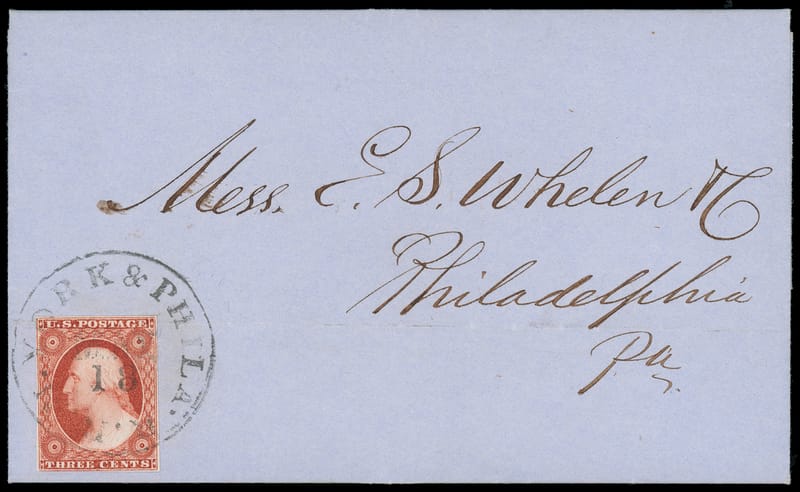 Mess. E. S. Whelen
Philadelphia
Pa
YORK & PHILA.
U.S. POSTAGE
18
THREE CENTS